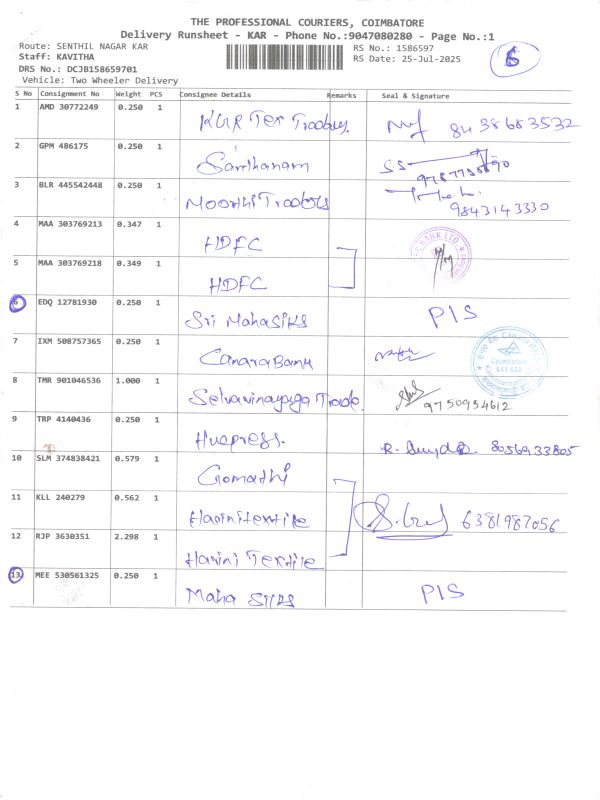 THE PROFESSIONAL COURIERS, COIMBATORE
Delivery Runsheet - KAR - Phone No.:9047080280 - Page No.:1
Route: SENTHIL NAGAR KAR RS No.: 1586597
Staff: KAVITHA RS Date: 25-Jul-2025
DRS No.: DCJB158659701
Vehicle: Two Wheeler Delivery
S No Consignment No Weight PCS Consignee Details Remarks Seal & Signature
1 AMD 30772249 0.250 1 KGR Tex Traders. 8438683532
2 GPM 486175 0.250 1 Santhanam
3 BLR 445542448 0.250 1 Moorthi Traders 9843143330
4 MAA 303769213 0.347 1 HDFC
5 MAA 303769218 0.349 1 HDFC
6 EDQ 12781930 0.250 1 Sri Maha Silks PIS
7 IXM 508757365 0.250 1 Canara Bank
8 TMR 901046536 1.000 1 Selvavinayaga Trade. 9750954612
9 TRP 4140436 0.250 1 8056933805
10 SLM 374838421 0.579 1 Gomathi
11 KLL 240279 0.562 1 Harini textile 6381987056
12 RJP 3630351 2.298 1 Harini Textile
13 MEE 530561325 0.250 1 Maha Silks PIS